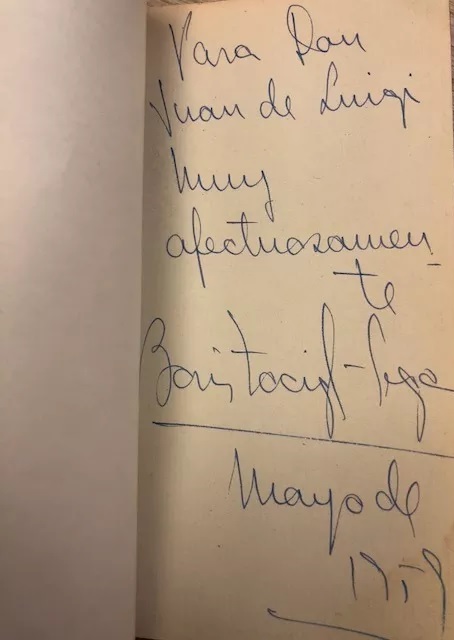 Para Don
Juan de Luigi
muy
afectuosamen-
te
Mayo de
1959